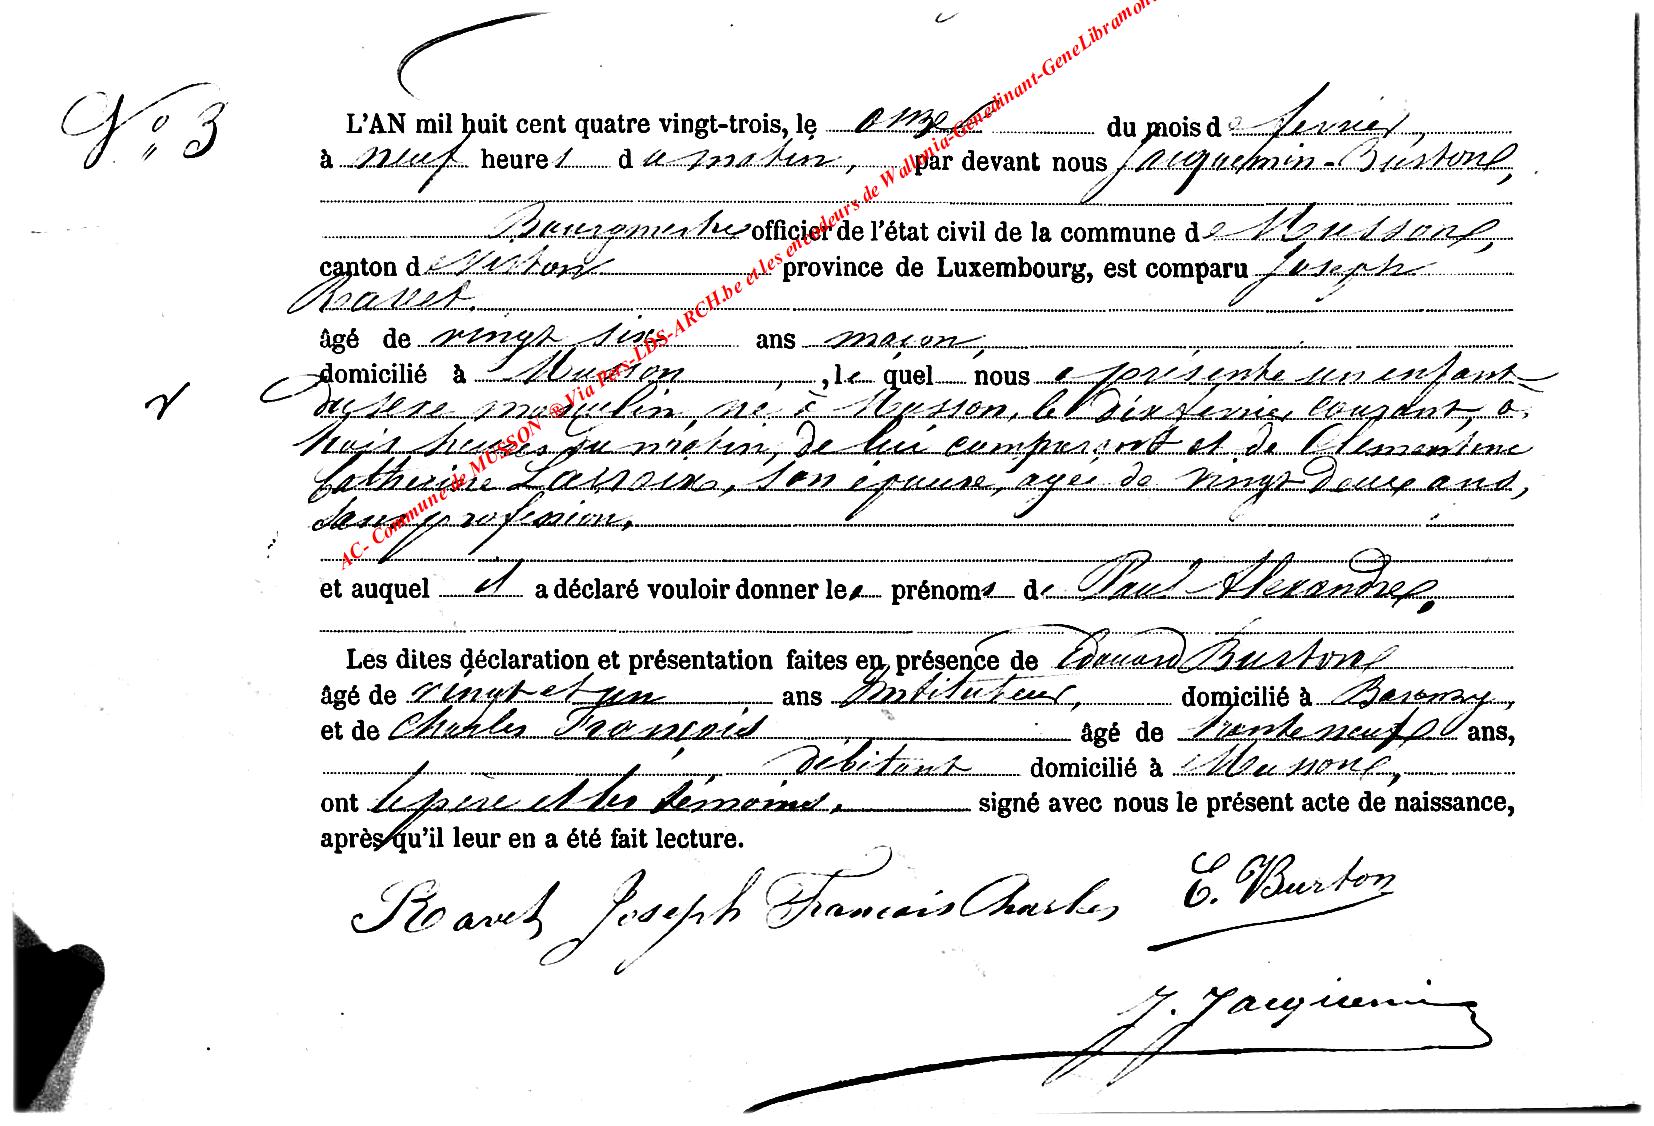 N° 3
L'AN mil huit cent quatre vingt-trois, le onze du mois de fevrier,
à neuf heures du matin, par devant nous Jacquemin-Burton,
Bourgmestre officier de l'état civil de la commune de Musson,
canton de Virton province de Luxembourg, est comparu Joseph
Ravet.
âgé de vingt six ans maçon,
domicilié à Musson, lequel nous a présenté un enfant
du sexe masculin, né à Musson, le dix fevrier courant, à
trois heures du matin, de lui comparant et de Clementine
Catherine Lacroix, son épouse, agée de vingt deux ans,
sans profession.
et auquel il a déclaré vouloir donner les prénoms de Paul Alexandre.
Les dites déclaration et présentation faites en présence de Edouard Burton
âgé de vingt et un ans Instituteur, domicilié à Baranzy,
et de Charles François âgé de trente neuf ans,
débitant domicilié à Musson,
ont le père et les témoins. signé avec nous le présent acte de naissance,
après qu'il leur en a été fait lecture.
Ravet Joseph François Charles E. Burton
J. Jacquemin
AC- Commune de MUSSON ® Via Pers-LDS-ARCH.be et les encodeurs de Wallonia-Genedinant-GeneLibramont